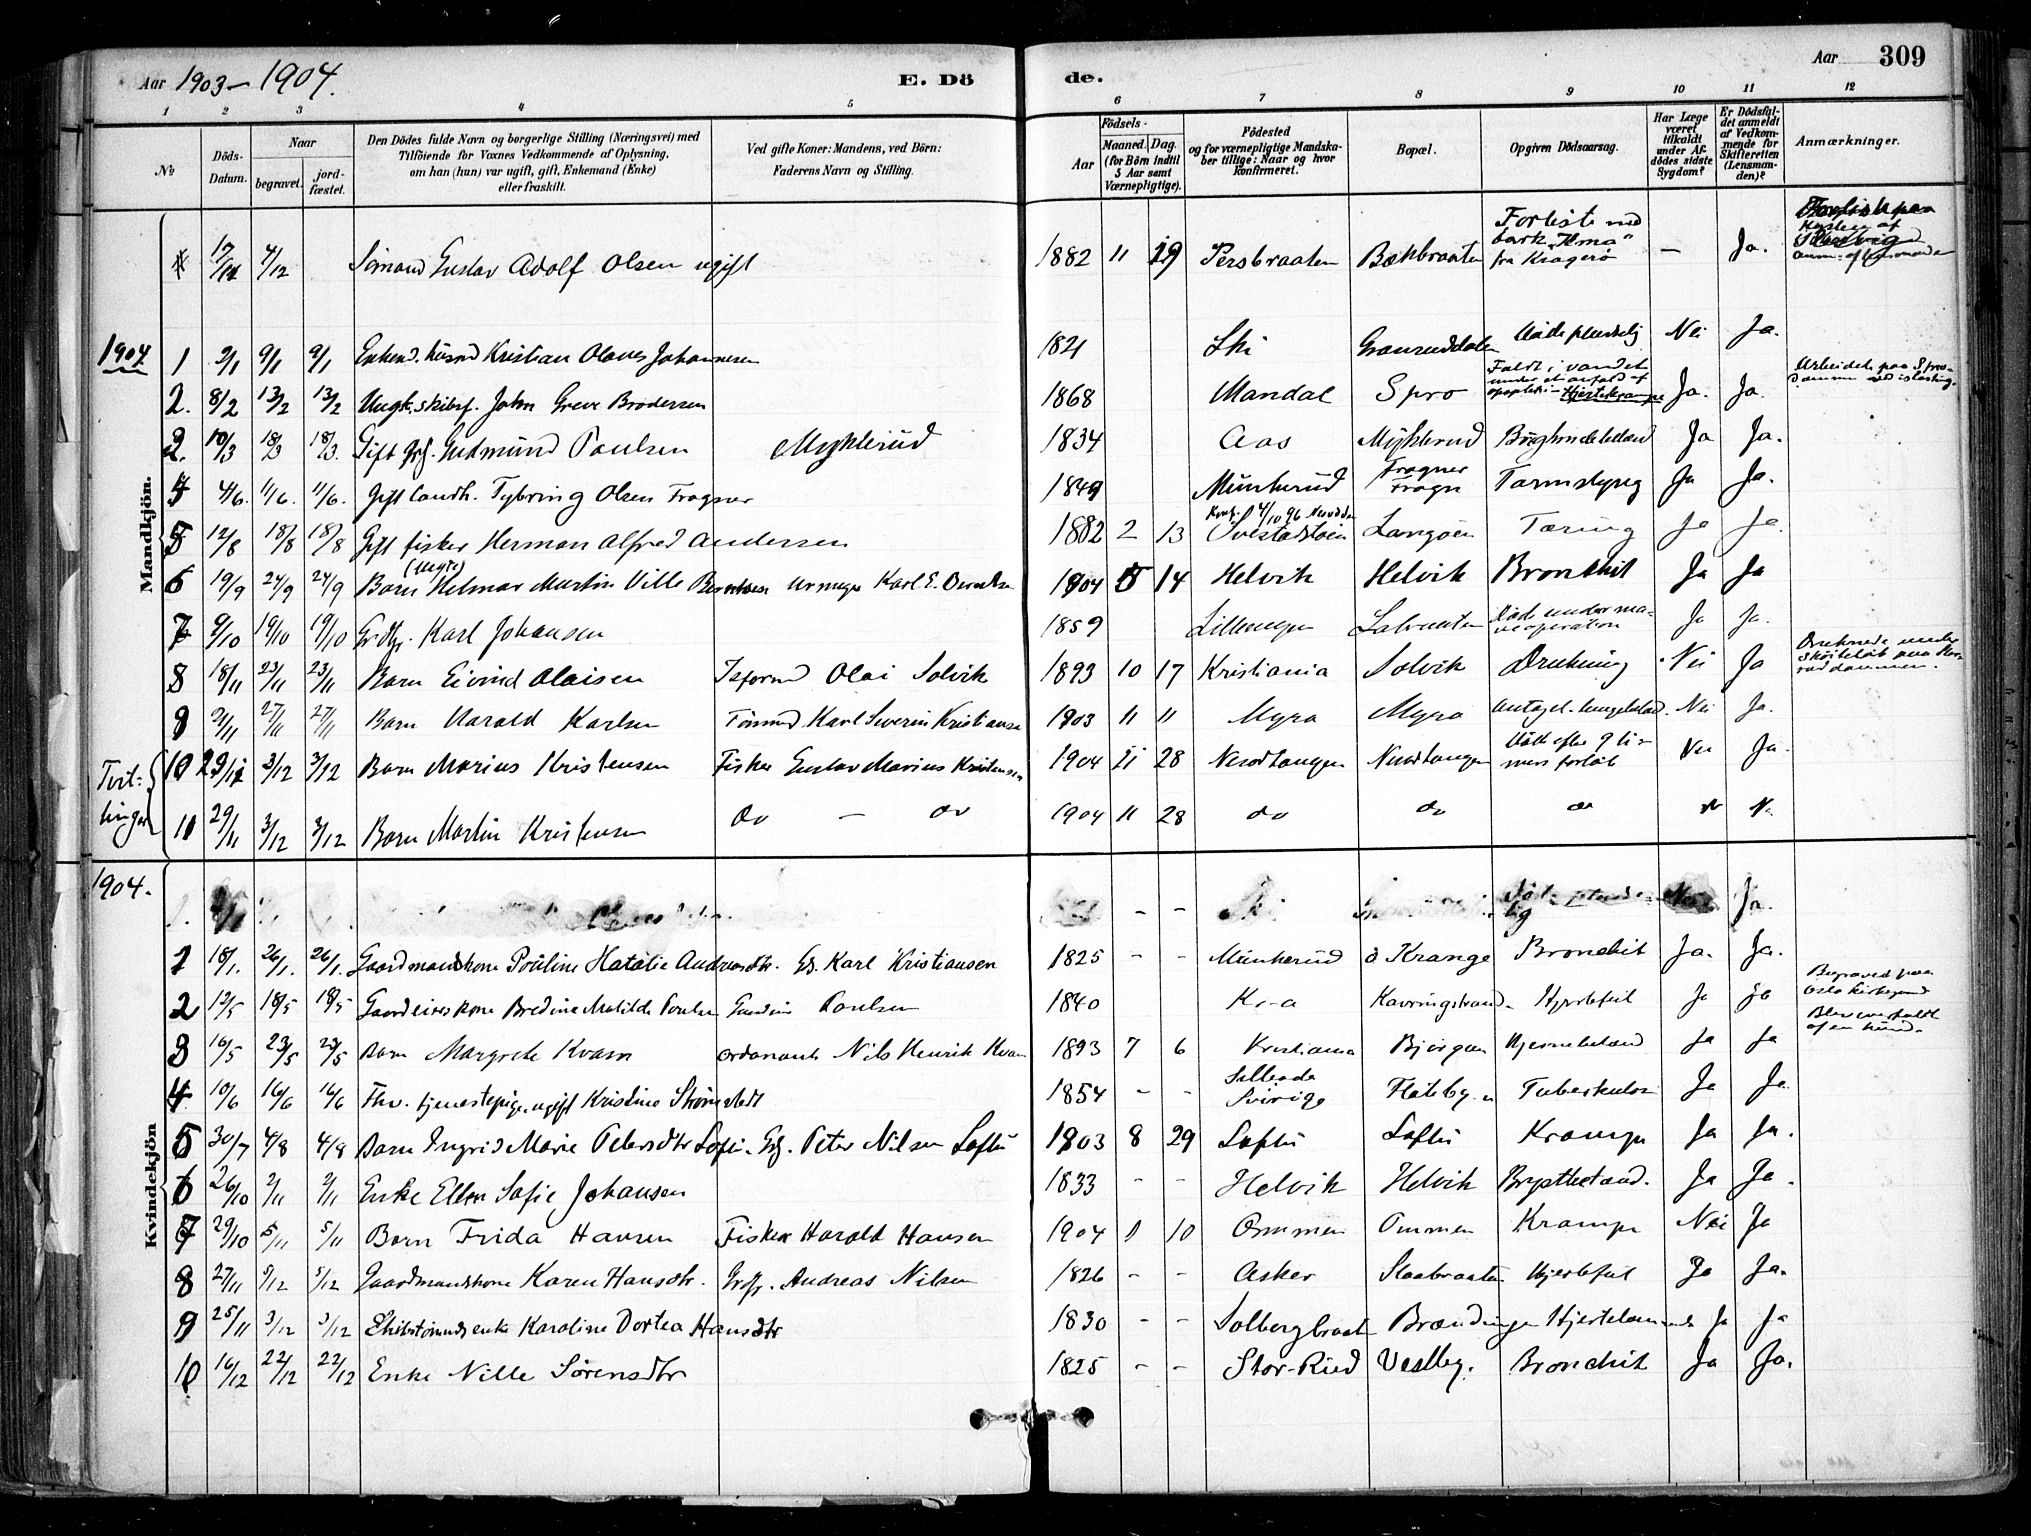 Aar 1903-1904.
E. Dö
de.
Aar 309
1 2 3 4 5 6 7 8 9 10 11 12
No
Döds-Datum.
Naar
begravet.
jord-fæstet.
Den Dödes fulde Navn og borgerlige Stilling (Næringsvei) med
Tilföiende for Voxnes Vedkommende af Oplysning,
om han (hun) var ugift, gift, Enkemand (Enke)
eller fraskilt.
Ved gifte Koner: Mandens, ved Börn:
Faderens Navn og Stilling.
Födsels-
Aar
Maaned. Dag.
(for Börn indtil
5 Aar samt
Værnepligtige).
Födested
og for værnepligtige Mandska-
ber tillige: Naar og hvor
konfirmeret.
Bopæl.
Opgiven Dödsaarsag.
Har Læge
været
tilkaldt
under Af-
dödes sidste
Sygdom?
Er Dödsfal-
det anmeldt
af Vedkom-
mende for
Skifteretten
(Lensman-
den)?
Anmærkninger.
Mandkjön.
17/11 4/12 Sömand Gustav Adolf Olsen ugift 1882 11 19 Persbraaten Bækbraaten Forliste med bark "Alma" fra Kragerø - Ja.
1904
1 2/1 9/1 9/1 Enkemd. husmd Kristian Olaves Johannesen 1821 Ski Granruddalen Döde pludselig Nei Ja.
2. 8/2 13/2 13/2 Ungk. skibsf. John Greve Brodersen 1868 Mandal Spro Faldt i vandet under et anfald af apoplexi - Hjertekrampe Ja. Ja. Arbeidet paa Spro-dammen ved islasting.
3. 10/3 18/3 18/3. Gift Grf. Gudmund Poulsen Myklerud 1834 Aas Myklerud Ja Ja.
4 4/6. 11/6. 11/6. Gift landh. Tybring Olsen Fragner 1849 Munkerud Fragner Fragn Tarmslyng Ja Ja.
5 12/8 18/8 18/8 Gift fisker Herman Alfred Andersen 1882 2 13 Konf. 4/10 96 Langøen Tæring Ja Ja.
6 19/9 24/9 24/9 Barn (Uegte) Helmar Martin Ville Berntsen Urmager Karl E. Berntsen 1904 5 14 Helvik Helvik Bronchit Ja Ja
7 9/10 19/10 19/10 Grdbr. Karl Johansen 1859 Död under ma-veoperation Ja Ja.
8 18/11 23/11 23/11 Barn Eivind Olaisen Olai Solvik 1893 10 17 Kristiania Solvik Drukning Nei Ja Druknede under skøiteløb
9 2/11 27/11 27/11 Barn Harald Karlsen Tömmd. Karl Severin Kristiansen 1903 11 11 Myra Myra antagel. lungebetænd. Nei Ja.
Tvil-linger
10 29/11 3/12 3/12 Barn Marius Kristensen Fisker Gustav Marius Kristensen 1904 11 28 Nesodtangen Nesodtangen Döde efter 9 ti-mers forløb Nei Ja.
11 29/11 3/12 3/12 Barn Martin Kristensen do - do 1904 11 28 do do do
1904.
Kvindekjön
- - Ski Ja.
1 18/1. 26/1. 26/1. Gaardmandskone Pauline Natalie Andreasdtr. Gb. Karl Kristiansen 1825 - - Munkerud ö Krange Bronchit Ja. Ja.
2 12/5 18/5 18/5 Gaardeierskone Bredine Matilde Poulsen Poulsen 1840 Kr-a Kavringstrand Hjertefeil Ja Ja Begraved paa Oslo kirkegaard
3 16/5 23/5 23/5 Barn Margrete Kvam Nils Henrik Kvam 1893 7 6 Kristiania Bjørgan Hjernebetænd Ja Ja Blev overfaldt af en hund.
4 10/6 16/6 16/6 Fhv. tjenestepige, ugift Kristine Strömstedt 1854 - - Sverige Flateby Tuberkulos Ja Ja.
5 30/7 4/8 4/8 Barn Ingrid Marie Petersdtr Loftu. Gb. Peter Nilsen Loftu 1903 8 29 Loftu Loftu Krampe Ja Ja.
6 26/10 2/11 2/11 Enke Ellen Sofie Johansen 1833 - - Helvik Helvik Brystbetænd. Ja Ja.
7 29/10 5/11 5/11 Barn Frida Hansen Fisker Harald Hansen 1904 1 10 Ommen Ommen Krampe Nei Ja
8 27/11 5/12 5/12 Gaardmandskone Karen Hansdtr. Grdbr. Andreas Nilsen 1826 - - Asker Slaabraaten Hjertefeil Ja Ja.
9 25/11 3/12 3/12 Skibstömmdsenke Karoline Dortea Hansdtr 1830 - - Solbergbraat Brændingen Hjertelammende Ja Ja
10 16/12 22/12 22/12 Enke Nille Sörensdtr 1825 - - Stor-Ried Vestby. Bronchit Ja Ja.